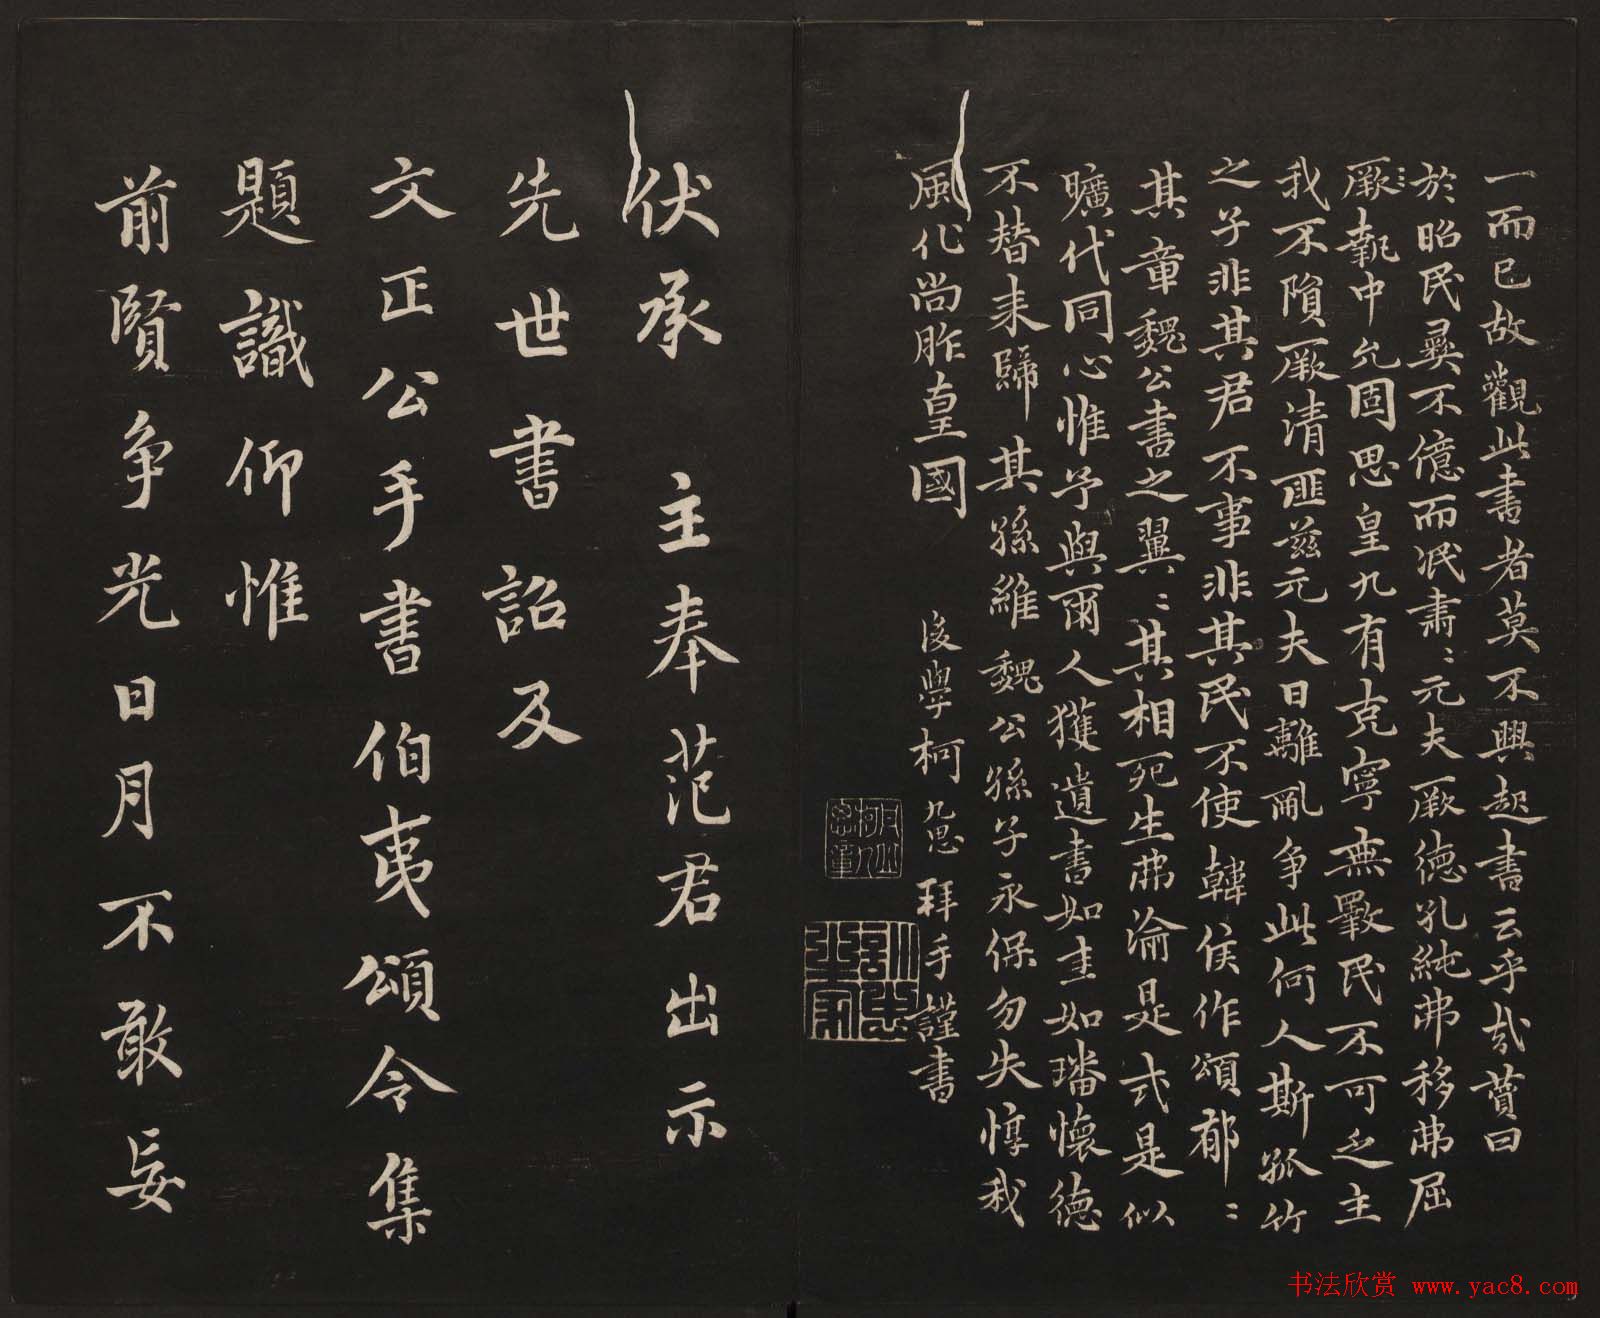 一而已故觀此書者莫不興起書云乎哉贊曰
於昭民彛不億而泯肅〻元夫厥德孔純弗移弗屈
厥執中允固思皇九有克寧無斁民不可乏主
我不隕厥清匪茲元夫日離亂争此何人斯孤竹
之子非其君不事非其民不使韓侯作頌郁〻
其章魏公書之翼〻其相死生弗渝是式是似
曠代同心惟予與爾人獲遺書如圭如璠懷德
不替来歸其孫維魏公孫子永保勿失惇我
風化尚胙皇國
後學柯九思拜手謹書
伏承 主奉范君出示
先世書詔及
文正公手書伯夷頌令集
題識仰惟
前賢争光日月不敢妄
书法欣赏 www.yac8.com